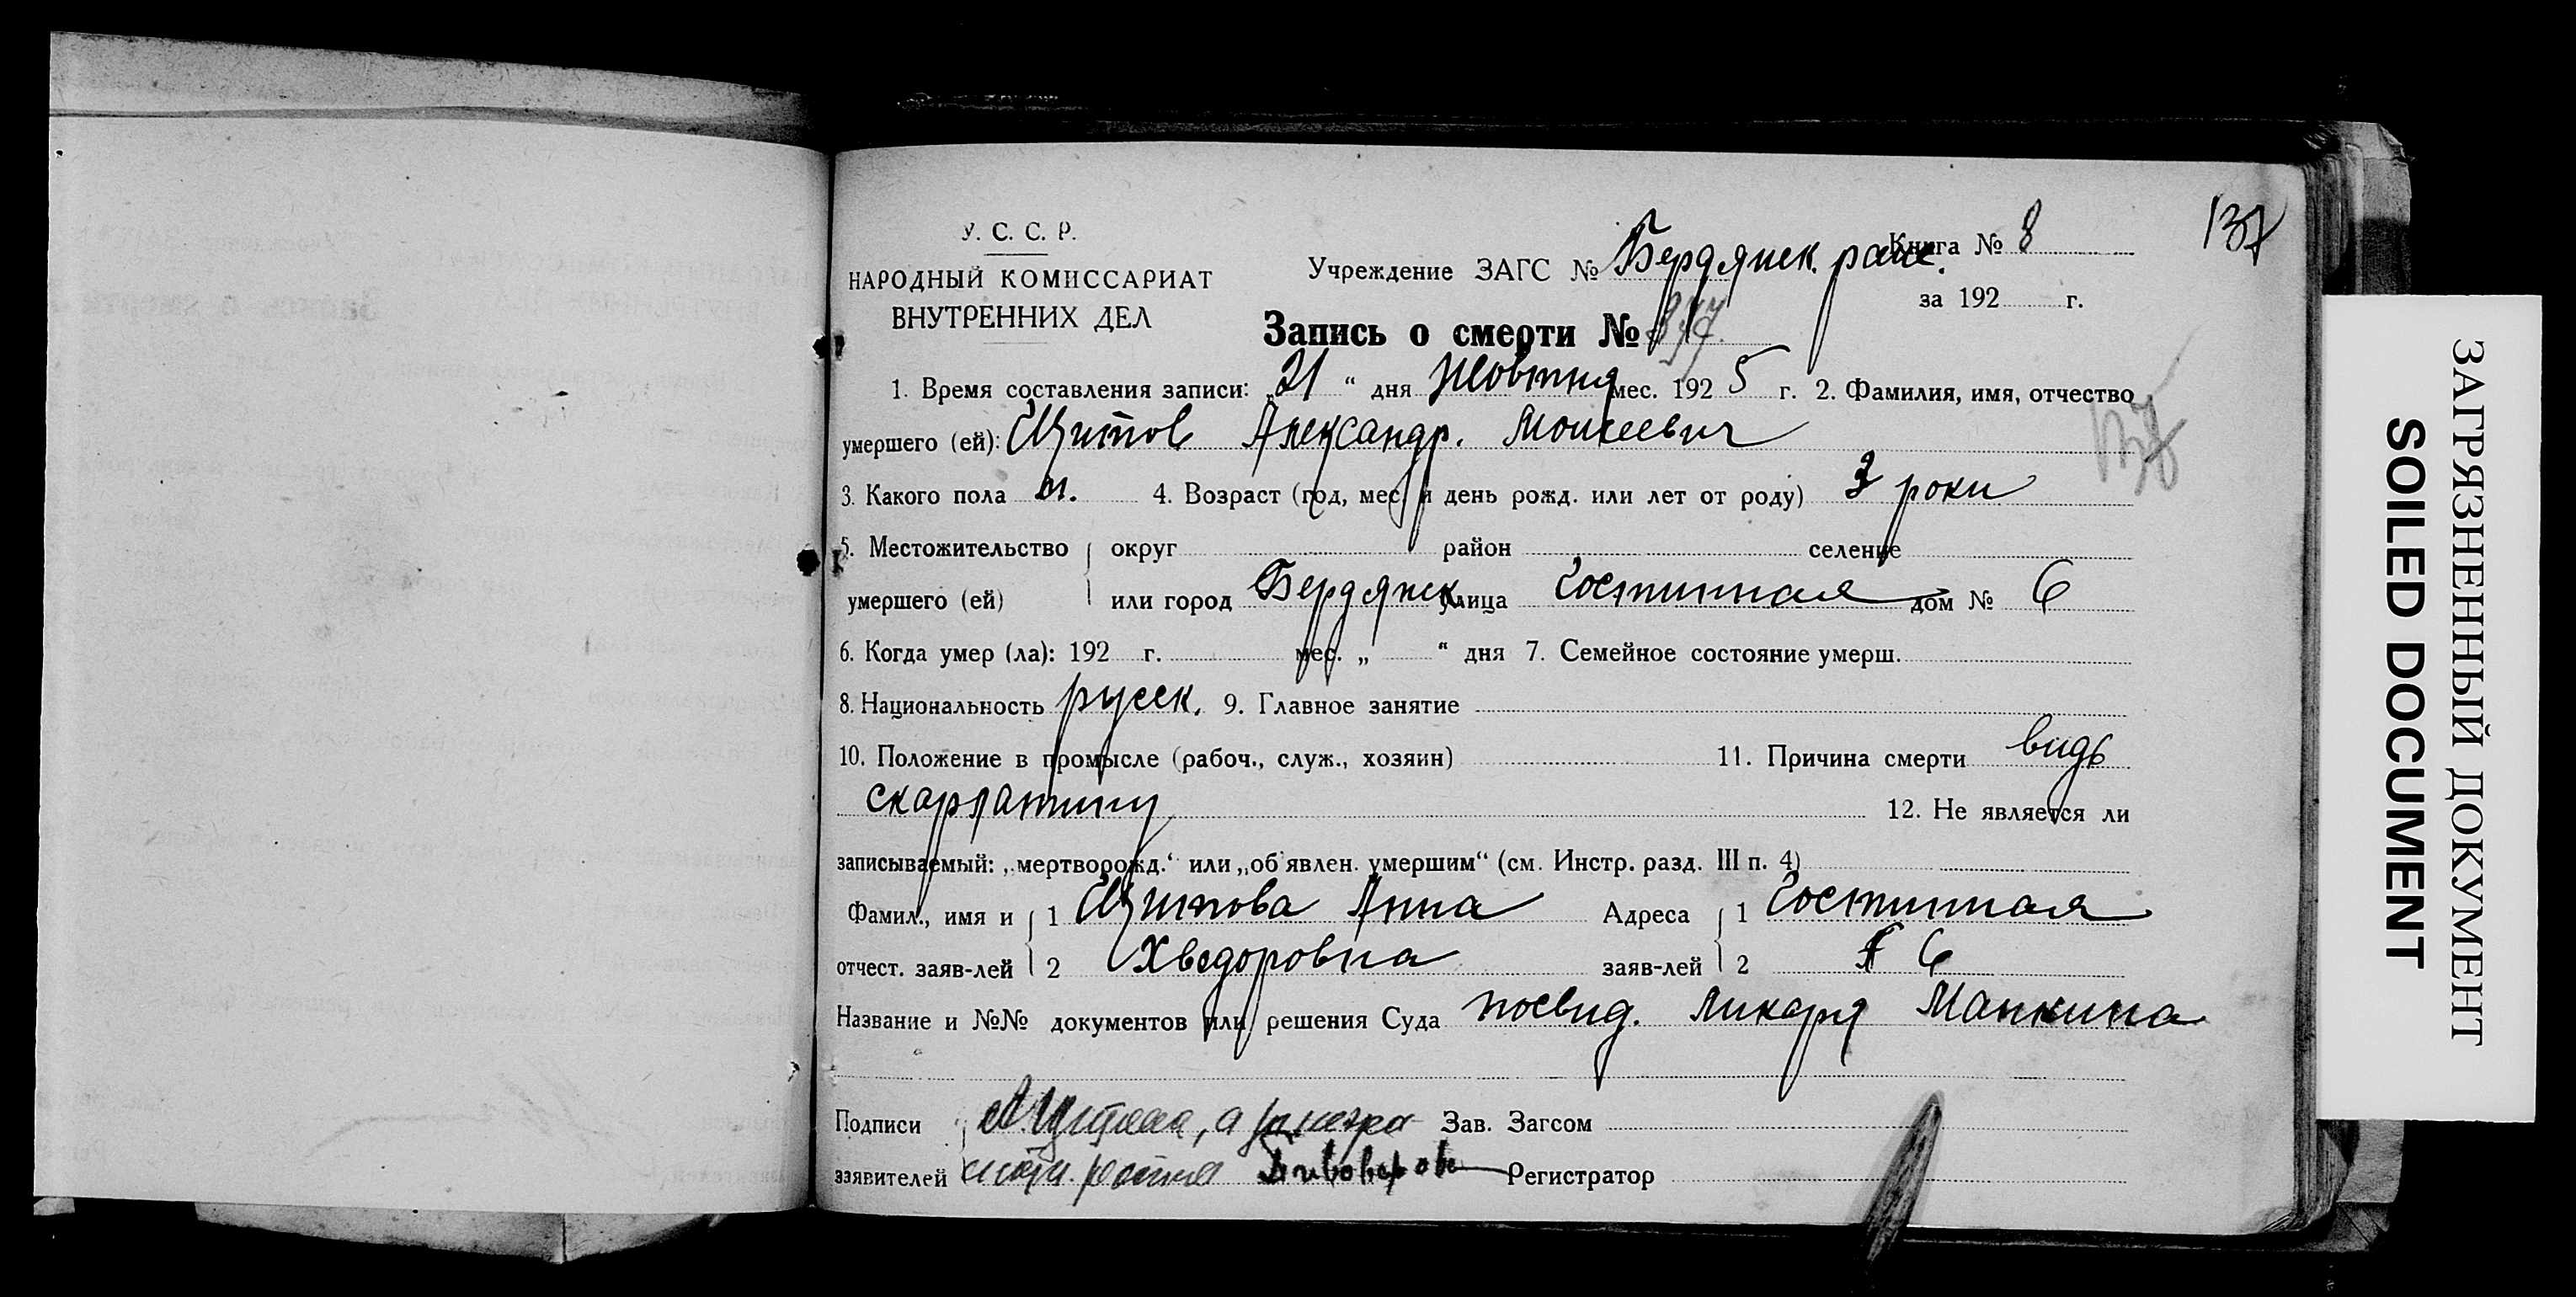 137
У. С. С. Р.
НАРОДНЫЙ КОМИССАРИАТ
ВНУТРЕННИХ ДЕЛ
Учреждение ЗАГС № Бердянск. райс. Книга № 8
за 192 г.
Запись о смерти №
1. Время составления записи: „21“ дня Жовтня мес. 1925 г. 2. Фамилия, имя, отчество
умершего (ей): Щитов Александр. Моисеевич
137
3. Какого пола м. 4. Возраст (год, мес. и день рожд. или лет от роду) 3 роки
5. Местожительство округ район селение
умершего (ей) или город Бердянск улица Гостинная дом № 6
6. Когда умер (ла): 192 г. мес. „ “ дня 7. Семейное состояние умерш.
8. Национальность русск. 9. Главное занятие
10. Положение в промысле (рабоч., служ., хозяин) 11. Причина смерти видъ
скарлатины 12. Не является ли
записываемый: „мертворожд.“ или „об'явлен. умершим“ (см. Инстр. разд. III п. 4)
Фамил., имя и 1 Щитова Анна Адреса 1 Гостинная
отчест. заяв-лей 2 Хведоровна заяв-лей 2 6
Название и №№ документов или решения Суда посвид. ликаря Манкина
Подписи Зав. Загсом
заявителей Регистратор
ЗАГРЯЗНЕННЫЙ ДОКУМЕНТ
SOILED DOCUMENT